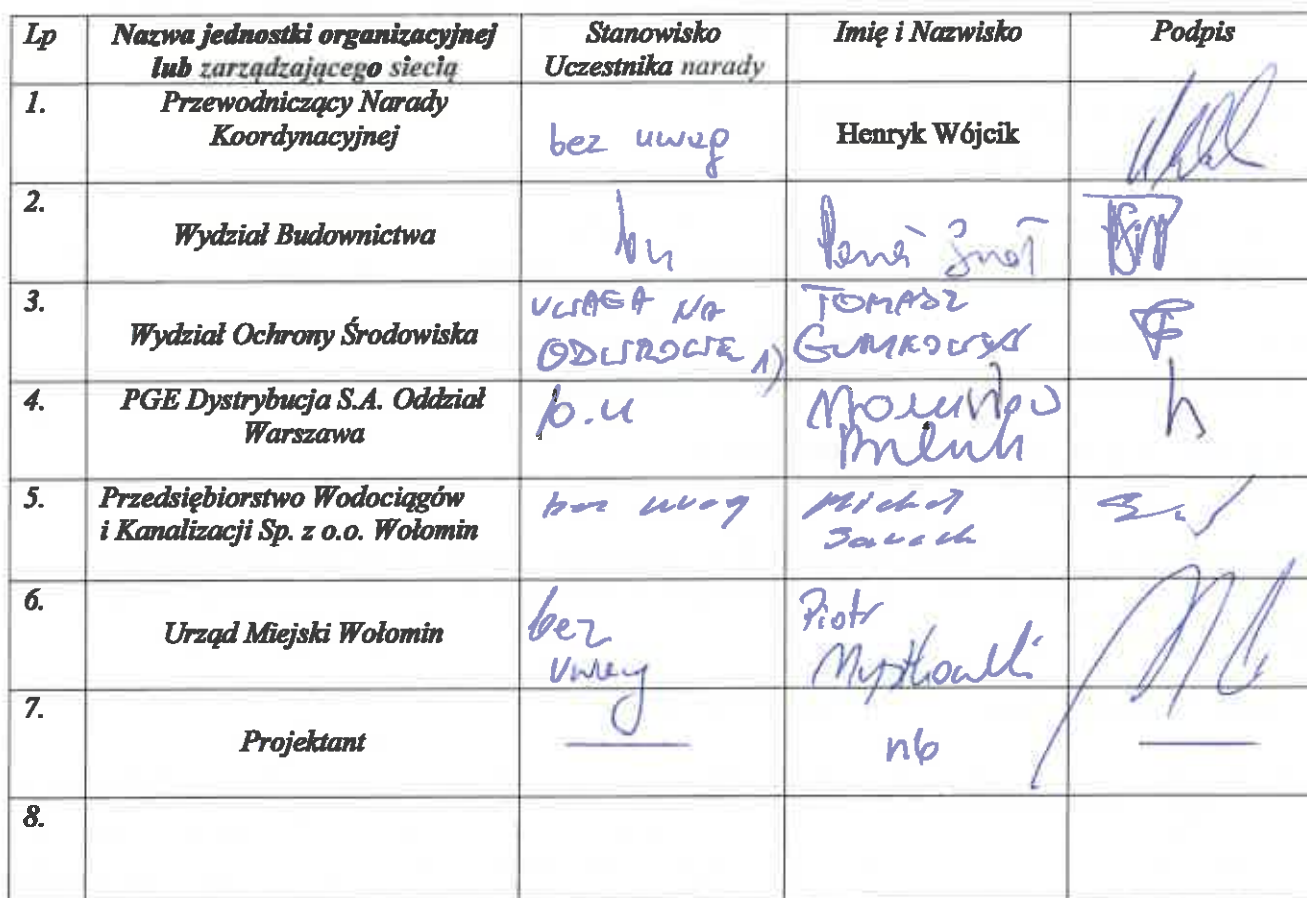 Lp Nazwa jednostki organizacyjnej lub zarządzającego siecią Stanowisko Uczestnika narady Imię i Nazwisko Podpis
1. Przewodniczący Narady Koordynacyjnej bez uwag Henryk Wójcik
2. Wydział Budownictwa bu
3. Wydział Ochrony Środowiska UWAGA NA ODWROCIE 1) TOMASZ
4. PGE Dystrybucja S.A. Oddział Warszawa b.u
5. Przedsiębiorstwo Wodociągów i Kanalizacji Sp. z o.o. Wołomin bez uwag Michał
6. Urząd Miejski Wołomin bez uwag Piotr
7. Projektant nb
8.